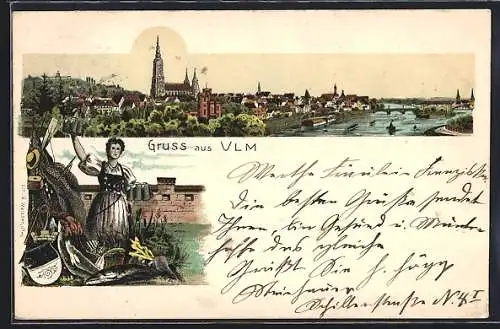 Gruss aus VLM
Werthe Fräulein Franziska
Die besten Grüße sendet
Ihnen, bin Gesund u. Munter
hoffe das gleiche
Grüßt Sie h. Högg
Steinhauer
Schillerstraße N. 4 I